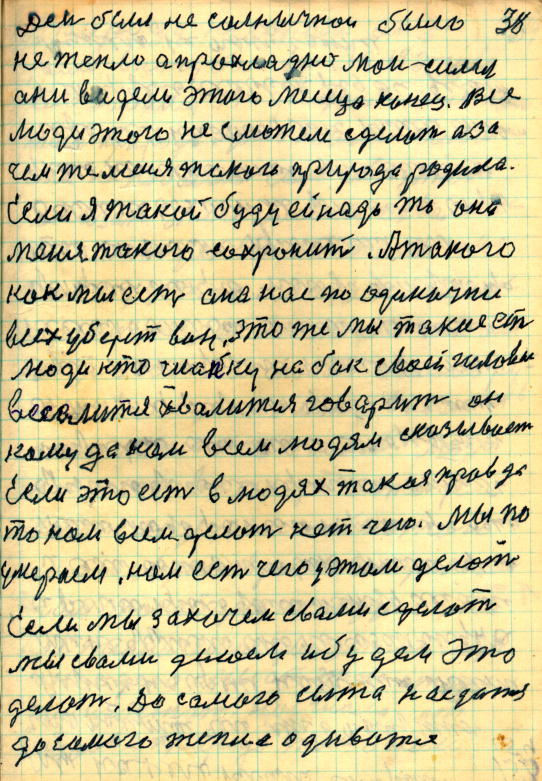 ден был не солнычной было 38
не тепло а прохладно мои силы
они видели этого месица конец. Все
люди этого не сможем сделат а за
чем же меня такого природа родила.
Если я такой буду ей надо то она
меня такого сохронит. А такого
как мы ест она нас по одиночки
всех уберет вон. Это же мы такие ест
люди кто шапку на бок своей человек
хвалится говарит он
кому да нам всем людям сказывает
Если это ест в людях такая правда
то нам всем делат нет чего. Мы по
умераем, нам ест чего у этом делат
Если мы захочем свами сделат
мы свами делаем и будем это
делат. До самого сыта наедатся
до самого тепла одыватся